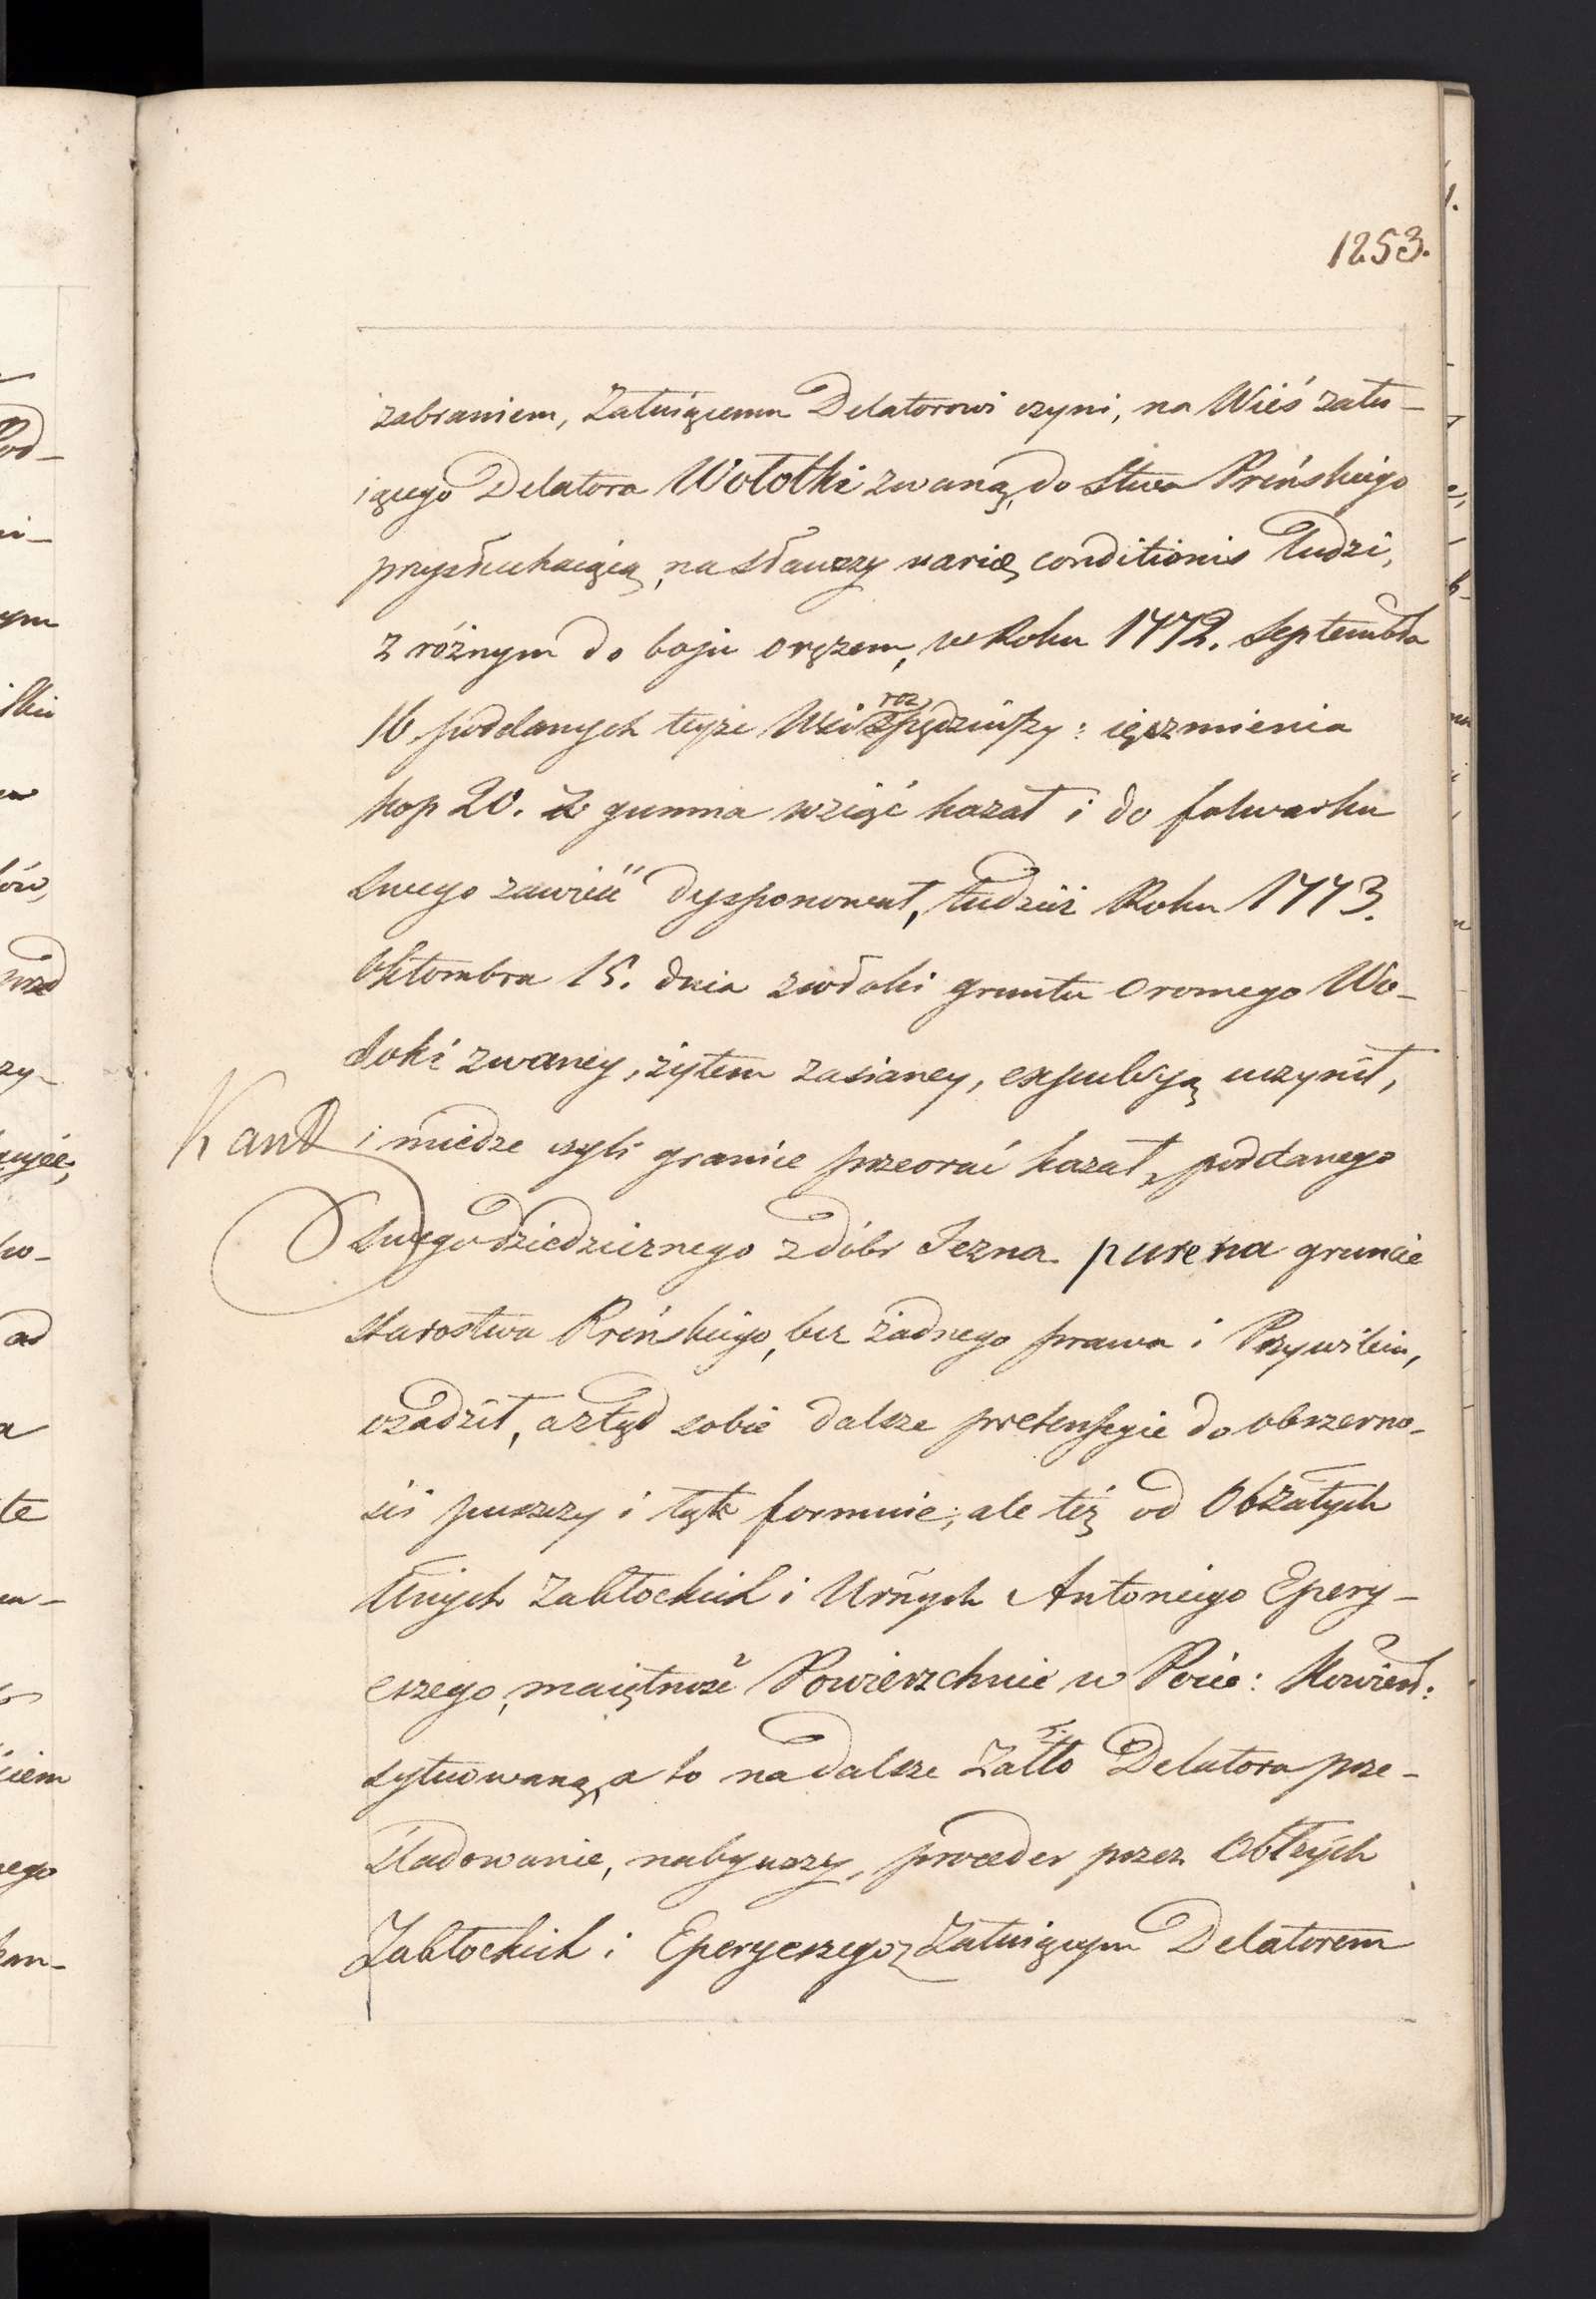 1253.
zabraniem, Żałuiącemu Delatorowi czyni, na Wieś żału-
iącego Delatora Wołołki zwaną, do Stwa Preńskiego
przysłuchaiącą, nasławszy variæ conditionis ludzi,
z różnym do boju orężem, w Roku 1772. Septembra
16 poddanych teyże Wsi rozpędziwszy: ięczmienia
kop 20. z gumna wziąć kazał i do folwarku
swego zawieść dysponował, tudzież Roku 1773.
Oktombra 15. dnia zwołoki gruntu oromego Wo-
łoki zwaney, żytem zasianey, expulsyą uczynił,
Kant i miedze czyli granice przeorać kazał, poddanego
swego dziedzicznego z dóbr Jezna pure na gruncie
starostwa Preńskiego, bez żadnego prawa i Przywileiu,
osadził, a ztąd sobie dalsze pretensyie do obszerno-
ści puszczy i łąk formuie; ale też od Obżałych
Urnych Zabłockich i Urnych Antoniego Epery-
eszego, maiętność Powierzchnie w Powie: Kowień:
sytuowaną, a to na dalsze Załło Delatora prze-
śladowanie, nabywszy, proceder przez Obłżych
Zabłockich i Eperyeszego z Żałuiącym Delatorem